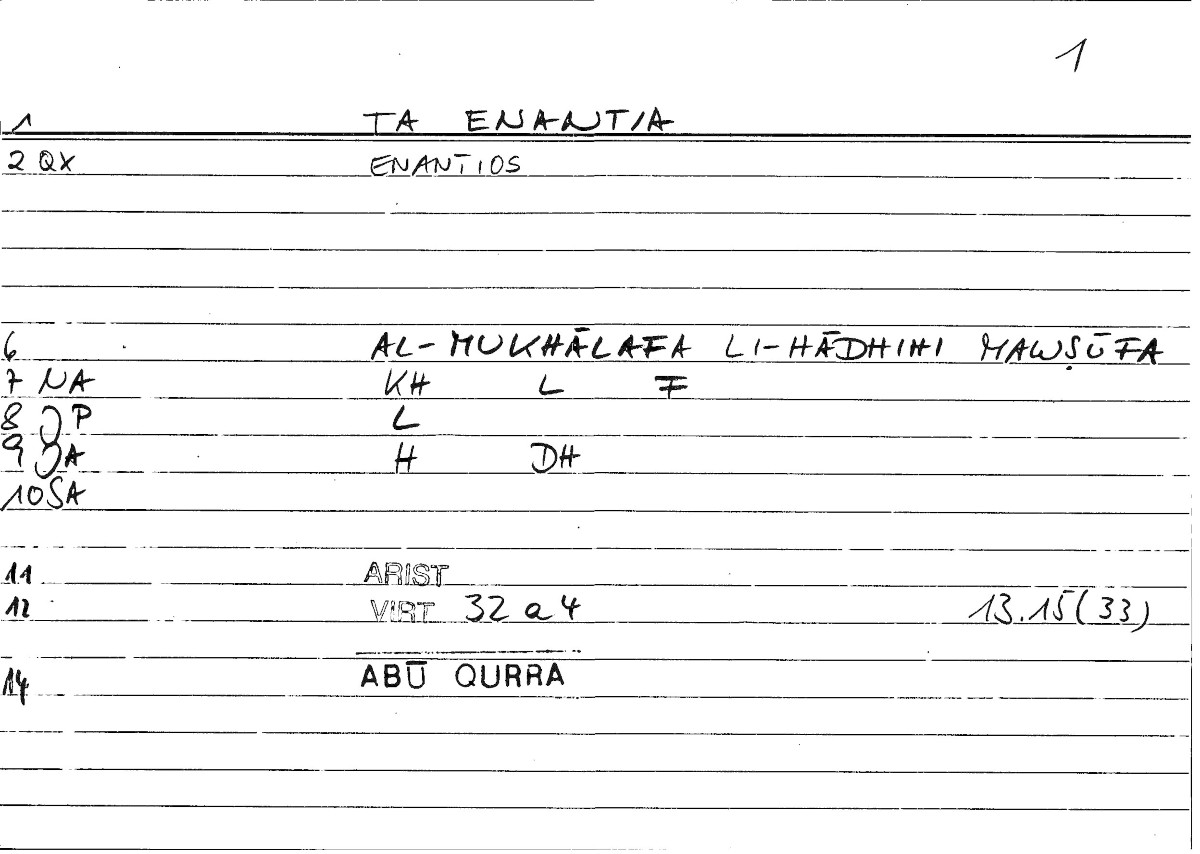 1
1 TA ENANTIA
2 QX ENANTIOS
6 AL-MUKHĀLAFA LI-HĀDHIHI MAWṢŪFA
7 NA KH L F
8 P L
9 A H DH
10 SA
11 ARIST
12 VIRT 32 a 4 13.15(33)
14 ABŪ QURRA